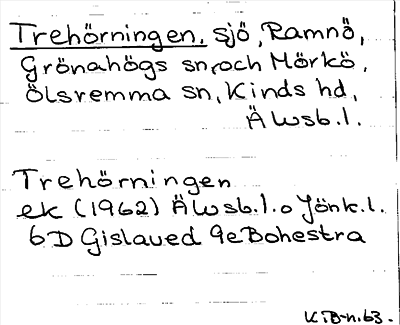 Trehörningen, sjö, Ramnö,
Grönahögs sn, och Mörkö,
Ölsremma sn, Kinds hd,
Ä wsb. l.
Trehörningen
ek (1962) Ä wsb. l. o Jönk. l.
6D Gislaved 9e Bohestra